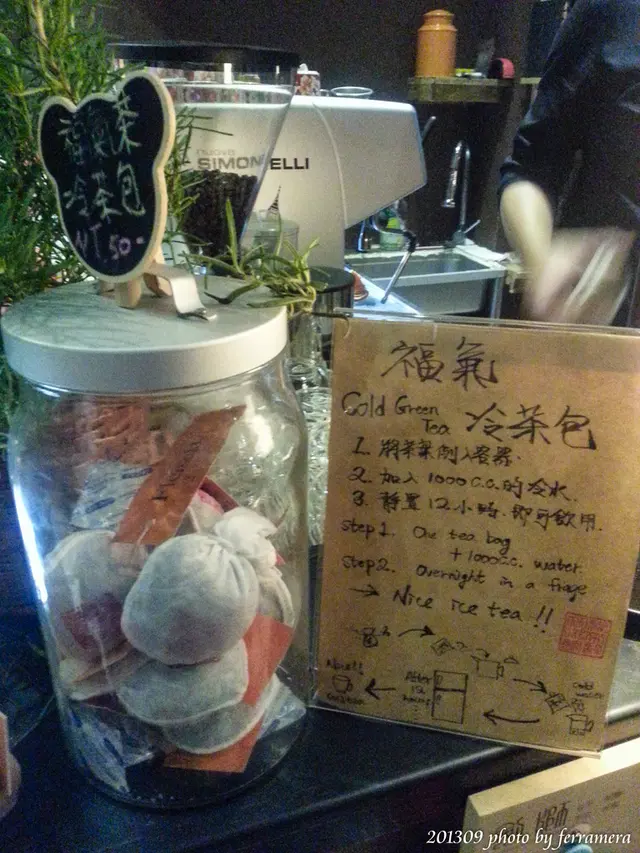 福氣茶
冷茶包
NT.50-
NUOVA
SIMONELLI
福氣
Cold Green
Tea 冷茶包
1. 將茶葉倒入容器.
2. 加入1000c.c.的冷水.
3. 靜置12小時.即可飲用.
step1. One tea bag
+1000c.c. water.
step2. Overnight in a frige
→ Nice ice tea !!
Nice!!
After
12
hours
Cold
water
201309 photo by ferramera